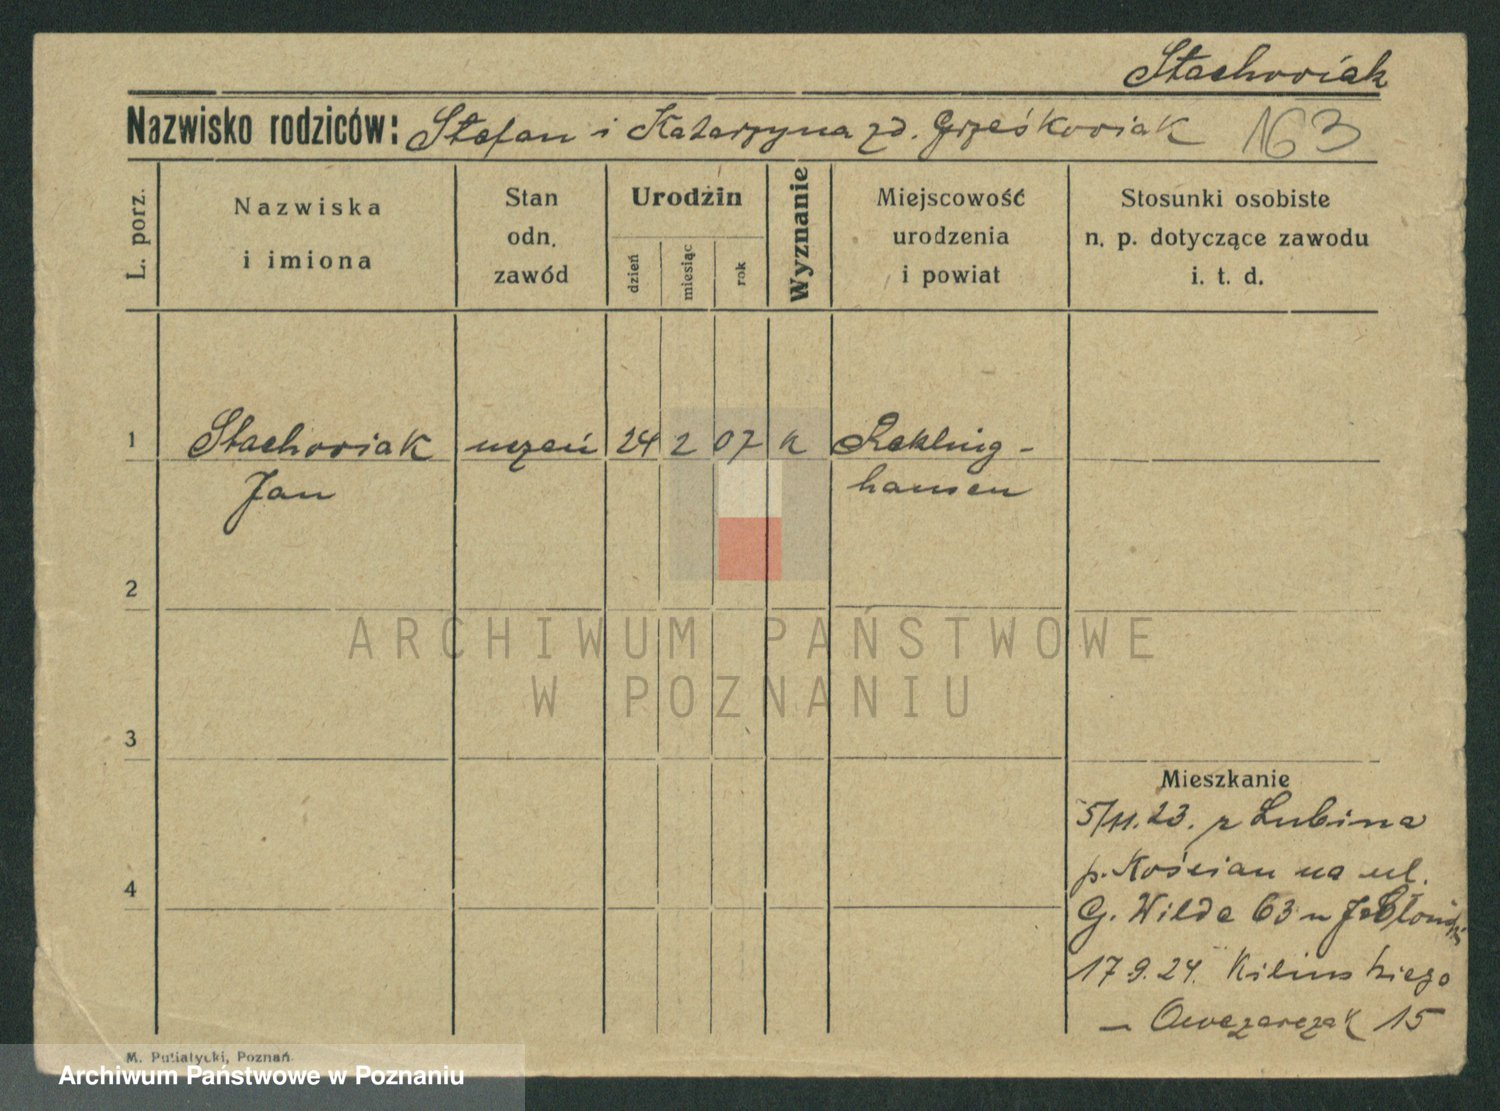 Stachowiak
Nazwisko rodziców: Stefan i Katarzyna zd. Grześkowiak 163
L. porz.
Nazwiska
i imiona
Stan
odn.
zawód
Urodzin
dzień
miesiąc
rok
Wyznanie
Miejscowość
urodzenia
i powiat
Stosunki osobiste
n. p. dotyczące zawodu
i. t. d.
1 Stachowiak uczeń 24 2 07 k Rekling-
Jan hausen
2
3
4
Mieszkanie
5/11.23. z Lubina
p. Kościan na ul.
G. Wilda 63 u
17 9.24. Kilinskiego
– Owczarczak 15
M. Putiatycki, Poznań.
ARCHIWUM PAŃSTWOWE
W POZNANIU
Archiwum Państwowe w Poznaniu